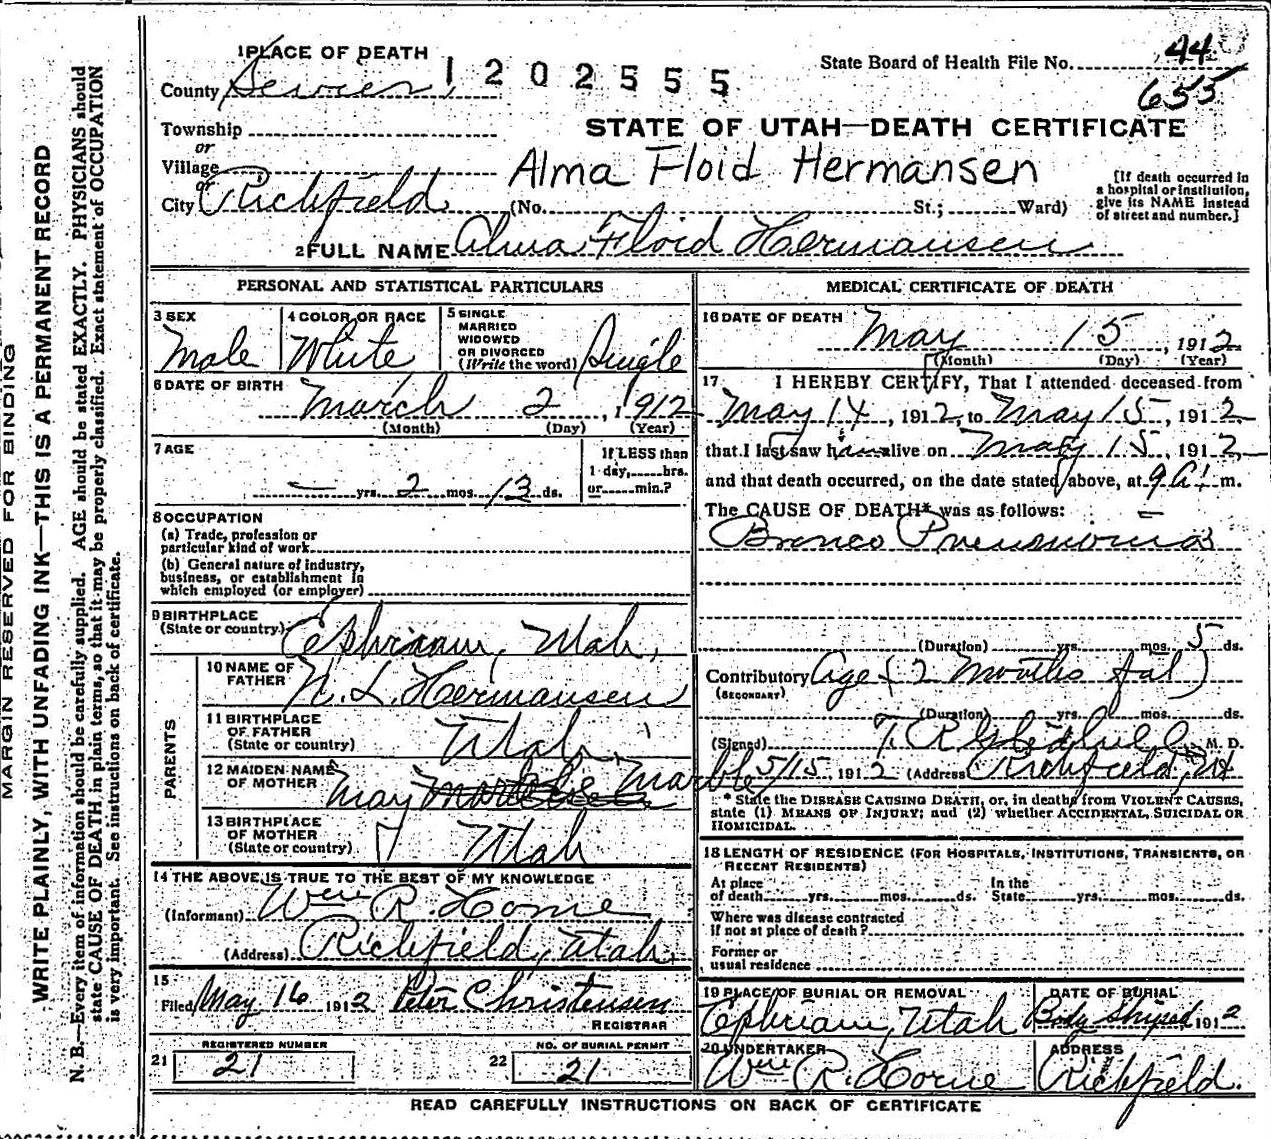 MARGIN RESERVED FOR BINDING
WRITE PLAINLY, WITH UNFADING INK—THIS IS A PERMANENT RECORD
N. B.—Every item of information should be carefully supplied. AGE should be stated EXACTLY. PHYSICIANS should
state CAUSE OF DEATH in plain terms, so that it may be properly classified. Exact statement of OCCUPATION
is very important. See instructions on back of certificate.
1 PLACE OF DEATH
County Sevier
1202555
State Board of Health File No. 44
655
Township
or
Village
or
City Richfield
STATE OF UTAH—DEATH CERTIFICATE
Alma Floid Hermansen
(No. St.; Ward)
[If death occurred in
a hospital or institution,
give its NAME instead
of street and number.]
2 FULL NAME Alma Floid Hermansen
PERSONAL AND STATISTICAL PARTICULARS
3 SEX
Male
4 COLOR OR RACE
White
5 SINGLE
MARRIED
WIDOWED
OR DIVORCED
(Write the word) Single
6 DATE OF BIRTH March 2, 1912
(Month) (Day) (Year)
7 AGE
— yrs. 2 mos. 13 ds.
If LESS than
1 day, hrs.
or min.?
8 OCCUPATION
(a) Trade, profession or
particular kind of work
(b) General nature of industry,
business, or establishment in
which employed (or employer)
9 BIRTHPLACE
(State or country) Ephriam, Utah,
PARENTS
10 NAME OF
FATHER N. L. Hermansen
11 BIRTHPLACE
OF FATHER
(State or country) Utah
12 MAIDEN NAME
OF MOTHER May Marble
13 BIRTHPLACE
OF MOTHER
(State or country) Utah
14 THE ABOVE IS TRUE TO THE BEST OF MY KNOWLEDGE
(Informant) Wm R. Horne
(Address) Richfield, Utah.
15
Filed May 16 1912 Peter Christensen
REGISTRAR
21 REGISTERED NUMBER
21
22 NO. OF BURIAL PERMIT
21
MEDICAL CERTIFICATE OF DEATH
16 DATE OF DEATH
May 15, 1912
(Month) (Day) (Year)
17 I HEREBY CERTIFY, That I attended deceased from
May 14, 1912, to May 15, 1912
that I last saw him alive on May 15, 1912
and that death occurred, on the date stated above, at 9 A. m.
The CAUSE OF DEATH* was as follows:
Bronco Pneumonia
(Duration) yrs. mos. 5 ds.
Contributory Age (2 months )
(SECONDARY)
(Duration) yrs. mos. ds.
(Signed) T. R. M. D.
5/15, 1912 (Address) Richfield, Ut
* State the DISEASE CAUSING DEATH, or, in deaths from VIOLENT CAUSES,
state (1) MEANS OF INJURY; and (2) whether ACCIDENTAL, SUICIDAL OR
HOMICIDAL.
18 LENGTH OF RESIDENCE (FOR HOSPITALS, INSTITUTIONS, TRANSIENTS, OR
RECENT RESIDENTS)
At place
of death yrs. mos. ds.
In the
State yrs. mos. ds.
Where was disease contracted
if not at place of death?
Former or
usual residence
19 PLACE OF BURIAL OR REMOVAL
Ephriam, Utah
DATE OF BURIAL
Body Shiped 1912
20 UNDERTAKER
Wm R. Horne
ADDRESS
Richfield.
READ CAREFULLY INSTRUCTIONS ON BACK OF CERTIFICATE